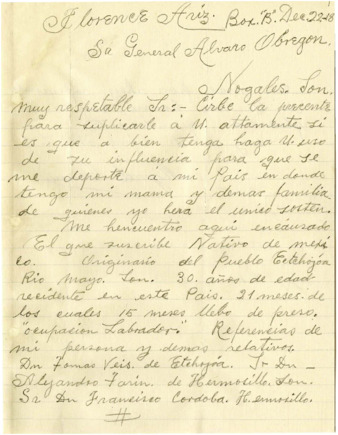 Florence Ariz. Box."B", Dec, 22-18
Sr General Alvaro Obregon.
Nogales. Son.
Muy respetable Sr:- Cirbe la precente
para suplicarle á U. attamente si
es que a bien tenga haga U uso
de su influencia para que se
me deporte á mi Pais en donde
tengo mi mama y demas familia
de quienes yo hera el unico sosten.
Me hencuentro aqui encausado
El que suscribe Nativo de mexi
co. Originario del Pueblo Etchojóa
Rio Mayo. Son. 30. años de edad
recidente en este Pais. 21. meses. de
los cuales 15 meses llebo de preso.
"ocupasion Labrador." Referencias de
mi persona y demas relativos.
Dn Tomas Veis. de Etchojóa. Sr Dn -
Alejandro Farin. de Hermosillo. Son.
Sr Dn Francisco Cordoba. Hermosillo.